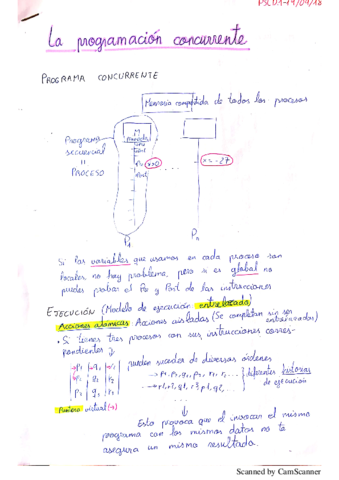 PSCD1-19/09/18
La programación concurrente
PROGRAMA CONCURRENTE
Memoria compartida de todos los procesos
Programa
secuencial
=
PROCESO
x=0
x=-27
Post
P1
Pn
Si las variables que usamos en cada proceso son
locales no hay problema, pero si es global no
puedes probar el Pre y Post de las instrucciones
EJECUCIÓN (Modelo de ejecución entrelazado)
Acciones atómicas Acciones aisladas (Se completan sin ser
entrelazadas)
• Si tienes tres procesos con sus instrucciones corres-
pondientes y
pueden suceder de diversos órdenes
diferentes historias
de ejecución
Puntero virtual (→)
Esto provoca que el invocar el mismo
programa con los mismos datos no te
asegura un mismo resultado.
Scanned by CamScanner